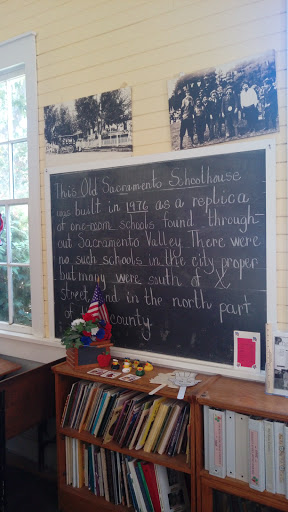 This Old Sacramento Schoolhouse
was built in 1976 as a replica
of one-room schools found through-
out Sacramento Valley. There were
no such schools in the city proper
but many were south of X
street and in the north part
of county.